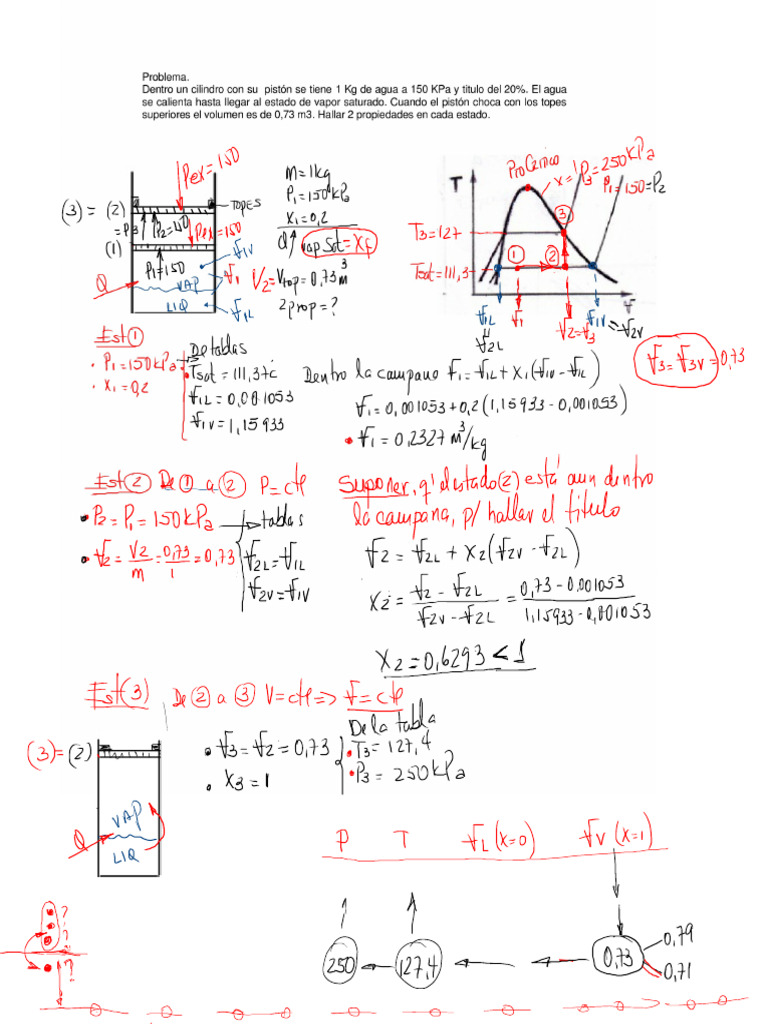 Problema.
Dentro un cilindro con su pistón se tiene 1 Kg de agua a 150 KPa y titulo del 20%. El agua
se calienta hasta llegar al estado de vapor saturado. Cuando el pistón choca con los topes
superiores el volumen es de 0,73 m3. Hallar 2 propiedades en cada estado.
Pex=150
(3) = (2)
=P3
P2=150
TOPES
Pex=150
(1)
P1=150
Q
VAP
LIQ
v1V
v1
v1L
M=1kg
P1=150kPa
X1=0,2
Q vap Sat=Xf
V2=Vtop=0,73m³
2prop=?
T
Pto Crítico
X=1
P3=250kPa
P1=150=P2
T3=127
Tsat=111,3
1
2
3
v
v1L
v2L
v1
v2=v3
v1V=v2V
v3=v3V=0,73
Est 1
• P1=150kPa
• X1=0,2
De tablas
• Tsat=111,37c
v1L=0,001053
v1V=1,15933
Dentro la campana v1=v1L+X1(v1V-v1L)
v1=0,001053+0,2(1,15933-0,001053)
• v1=0,2327m³/kg
Est 2 De 1 a 2 P=cte
• P2=P1=150kPa → tablas
• v2=V2/m=0,73/1=0,73
v2L=v1L
v2V=v1V
Suponer, q' el estado (2) está aun dentro
la campana, p/ hallar el titulo
v2=v2L+X2(v2V-v2L)
X2=(v2-v2L)/(v2V-v2L)=(0,73-0.001053)/(1,15933-0,001053)
X2=0,6293<1
Est(3) De 2 a 3 V=cte=>v=cte
(3)=(2)
VAP
Q
LIQ
• v3=v2=0,73
• X3=1
De la tabla
• T3=127,4
• P3=250kPa
P T vL(X=0) vV(X=1)
250 ← 127,4 ← ← 0,73
0,79
0,71
?
?
?
?